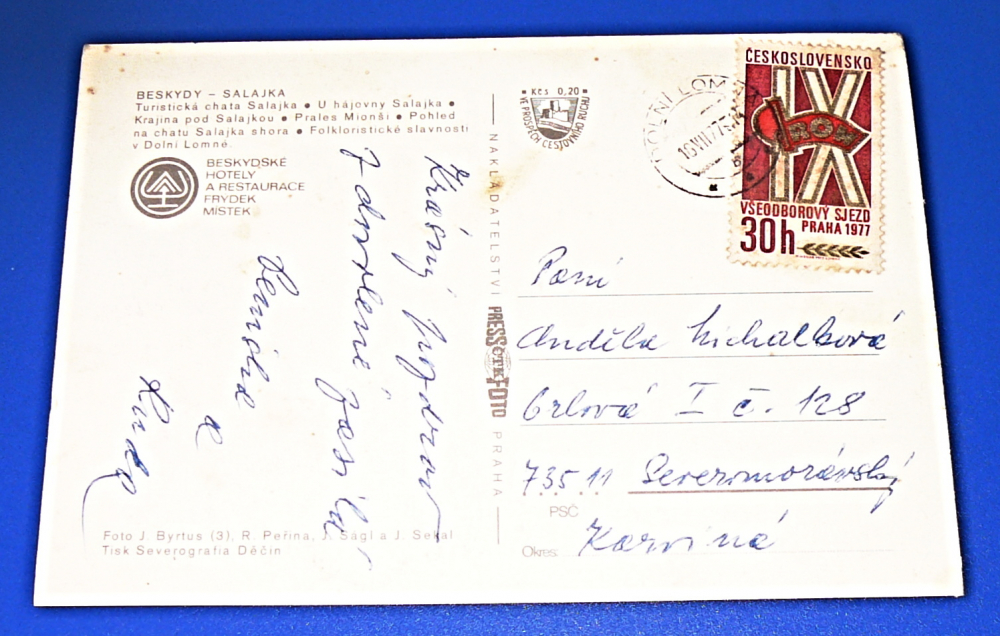 BESKYDY – SALAJKA
Turistická chata Salajka • U hájovny Salajka •
Krajina pod Salajkou • Prales Mionší • Pohled
na chatu Salajka shora • Folkloristické slavnosti
v Dolní Lomné
BESKYDSKÉ
HOTELY
A RESTAURACE
FRÝDEK
MÍSTEK
Krásný pozdrav
z dovolené zasílá
a
Foto J. Byrtus (3), R. Peřina, J. Ságl a J. Sekal
Tisk Severografia Děčín
NAKLADATELSTVÍ PRESSFOTO PRAHA
ČTK
Kčs 0,20
VE PROSPĚCH CESTOVNÍHO RUCHU
DOLNÍ LOMNÁ
ČESKOSLOVENSKO
IX
ROH
VŠEODBOROVÝ SJEZD
PRAHA 1977
30h
Paní
Anděla Michalková
Orlová I č. 128
735 11 Severomoravský
PSČ
Okres: Karviná